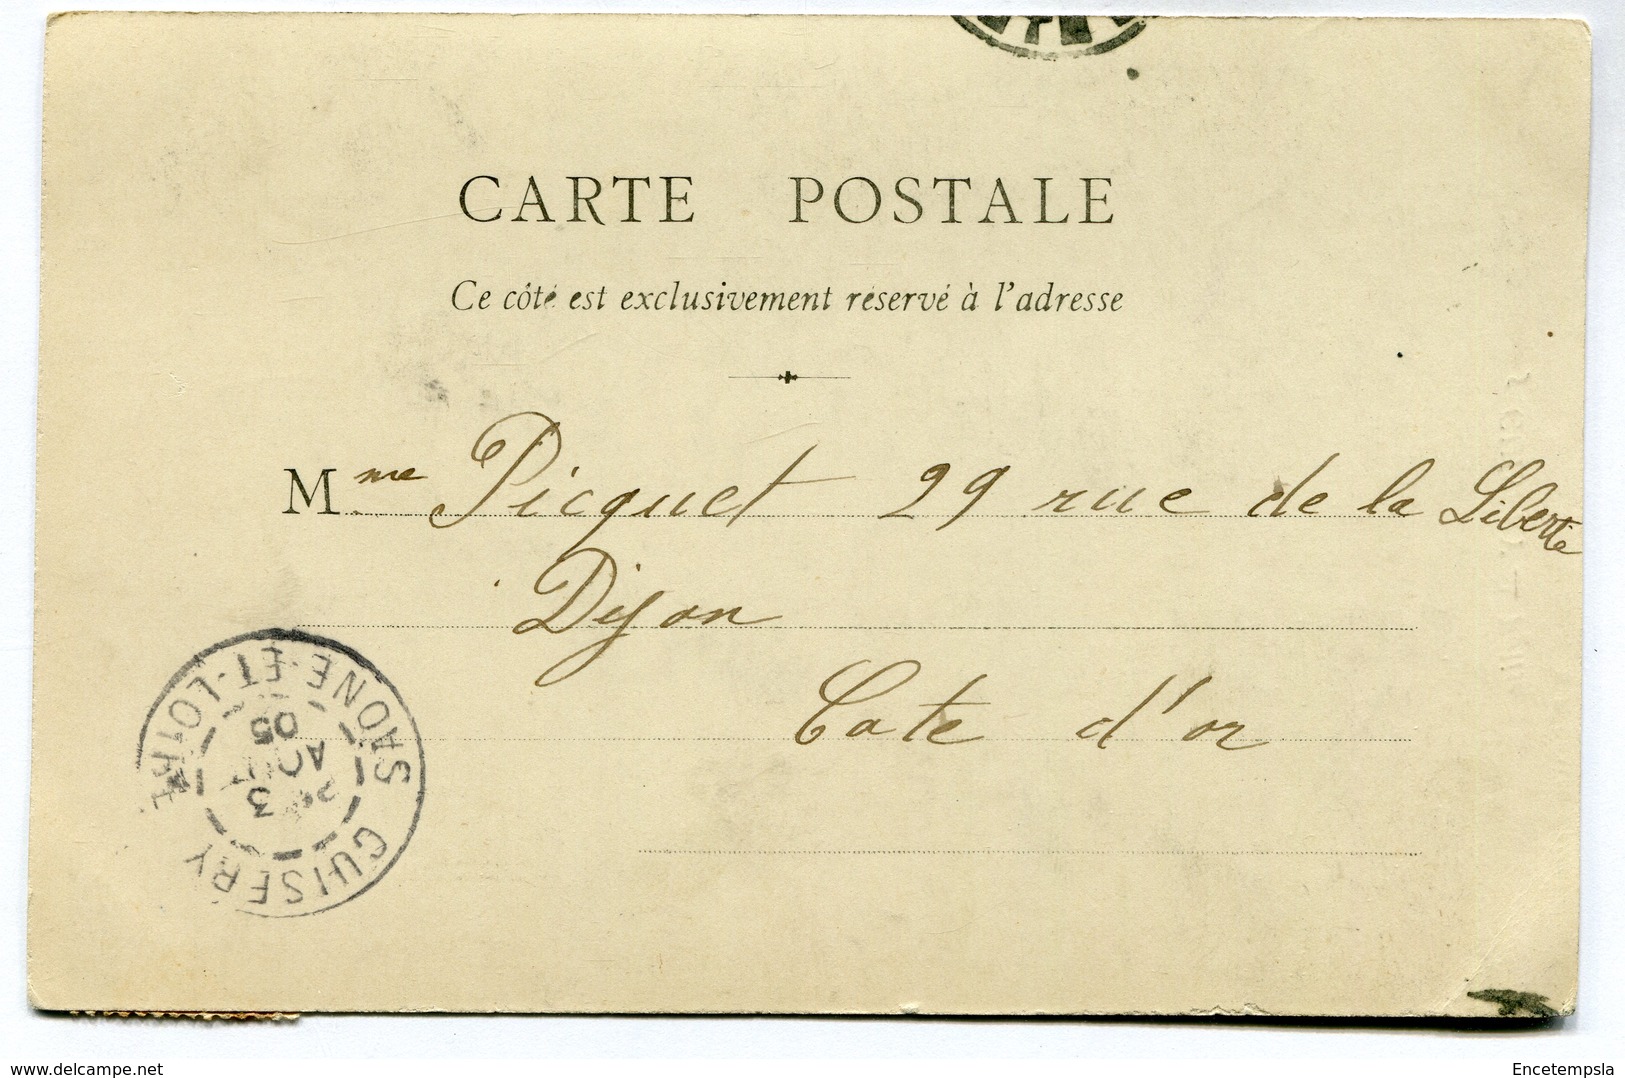 CARTE POSTALE
Ce côté est exclusivement réservé à l'adresse
Mme Picquet 29 rue de la Liberté
Dijon
Cote d'or
CUISERY
3
AOUT
05
SAONE-ET-LOIRE
www.delcampe.net
Encetempsla